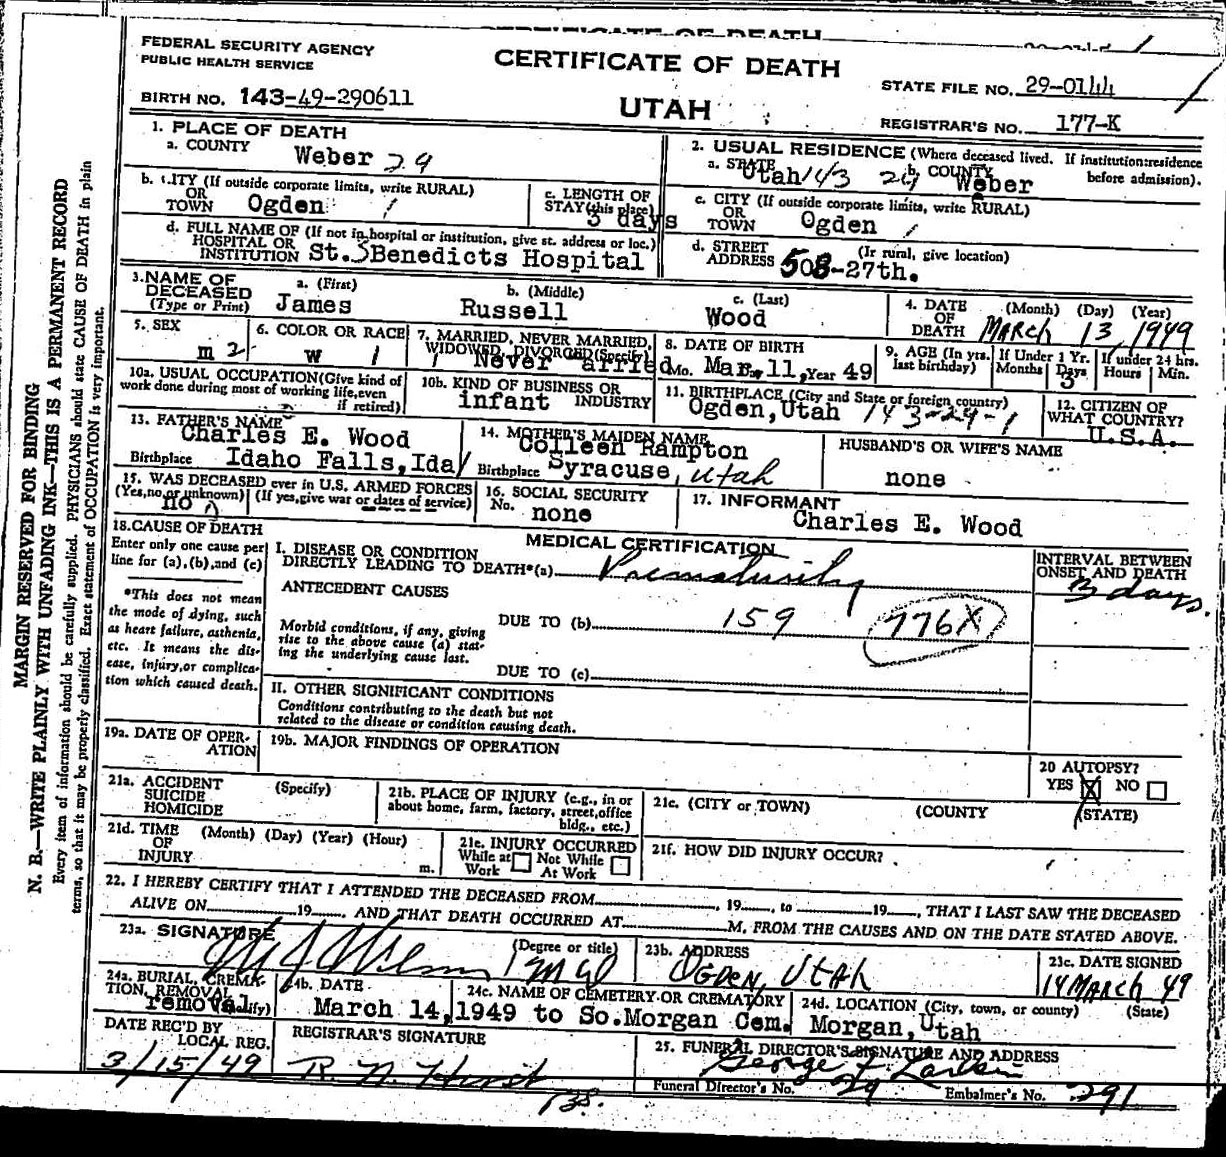 CERTIFICATE OF DEATH
FEDERAL SECURITY AGENCY
PUBLIC HEALTH SERVICE
CERTIFICATE OF DEATH
STATE FILE NO. 29-0144
BIRTH NO. 143-49-290611
UTAH
REGISTRAR'S NO. 177-K
1. PLACE OF DEATH
a. COUNTY Weber 29
2. USUAL RESIDENCE (Where deceased lived. If institution: residence before admission).
a. STATE Utah 143 29 b. COUNTY Weber
b. CITY (If outside corporate limits, write RURAL)
OR
TOWN Ogden 1
c. LENGTH OF
STAY (this place) 3 days
c. CITY (If outside corporate limits, write RURAL)
OR
TOWN Ogden 1
d. FULL NAME OF (If not in hospital or institution, give st. address or loc.)
HOSPITAL OR
INSTITUTION St. Benedicts Hospital
d. STREET (If rural, give location)
ADDRESS 508-27th.
3. NAME OF
DECEASED
(Type or Print)
a. (First) James
b. (Middle) Russell
c. (Last) Wood
4. DATE (Month) (Day) (Year)
OF
DEATH MARCH 13, 1949
5. SEX
m 2
6. COLOR OR RACE
w 1
7. MARRIED, NEVER MARRIED,
WIDOWED, DIVORCED (Specify)
Never arried
8. DATE OF BIRTH
Mo. Mar. 11, Year 49
9. AGE (In yrs. last birthday)
If Under 1 Yr.
Months Days
3
If under 24 hrs.
Hours Min.
10a. USUAL OCCUPATION (Give kind of
work done during most of working life, even
if retired)
10b. KIND OF BUSINESS OR
infant INDUSTRY
11. BIRTHPLACE (City and State or foreign country)
Ogden, Utah 143-29-1
12. CITIZEN OF
WHAT COUNTRY?
U.S.A.
13. FATHER'S NAME
Charles E. Wood
Birthplace Idaho Falls, Ida
14. MOTHER'S MAIDEN NAME
Colleen Rampton
Birthplace Syracuse, Utah
HUSBAND'S OR WIFE'S NAME
none
15. WAS DECEASED ever in U.S. ARMED FORCES
(Yes, no, or unknown) (If yes, give war or dates of service)
no 0
16. SOCIAL SECURITY
No. none
17. INFORMANT
Charles E. Wood
18. CAUSE OF DEATH
Enter only one cause per
line for (a), (b), and (c)
*This does not mean
the mode of dying, such
as heart failure, asthenia,
etc. It means the dis-
ease, injury, or complica-
tion which caused death.
MEDICAL CERTIFICATION
I. DISEASE OR CONDITION
DIRECTLY LEADING TO DEATH*(a) Prematurity
INTERVAL BETWEEN
ONSET AND DEATH
3 days.
ANTECEDENT CAUSES
DUE TO (b) 159 776X
Morbid conditions, if any, giving
rise to the above cause (a) stat-
ing the underlying cause last.
DUE TO (c)
II. OTHER SIGNIFICANT CONDITIONS
Conditions contributing to the death but not
related to the disease or condition causing death.
19a. DATE OF OPER-
ATION
19b. MAJOR FINDINGS OF OPERATION
20 AUTOPSY?
YES X NO
21a. ACCIDENT (Specify)
SUICIDE
HOMICIDE
21b. PLACE OF INJURY (e.g., in or
about home, farm, factory, street, office
bldg., etc.)
21c. (CITY or TOWN) (COUNTY) (STATE)
21d. TIME (Month) (Day) (Year) (Hour)
OF
INJURY m.
21e. INJURY OCCURRED
While at Work Not While At Work
21f. HOW DID INJURY OCCUR?
22. I HEREBY CERTIFY THAT I ATTENDED THE DECEASED FROM 19 , to 19 , THAT I LAST SAW THE DECEASED
ALIVE ON 19 , AND THAT DEATH OCCURRED AT M, FROM THE CAUSES AND ON THE DATE STATED ABOVE.
23a. SIGNATURE (Degree or title)
23b. ADDRESS
OGDEN, UTAH
23c. DATE SIGNED
14 MARCH 49
24a. BURIAL, CREMA-
TION, REMOVAL (Specify)
removal
24b. DATE
March 14, 1949
24c. NAME OF CEMETERY OR CREMATORY
to So. Morgan Cem.
24d. LOCATION (City, town, or county) (State)
Morgan, Utah
DATE REC'D BY
LOCAL REG.
3/15/49
REGISTRAR'S SIGNATURE
25. FUNERAL DIRECTOR'S SIGNATURE AND ADDRESS
George Larkin
Funeral Director's No. 29 Embalmer's No. 291
MARGIN RESERVED FOR BINDING
N. B.—WRITE PLAINLY WITH UNFADING INK—THIS IS A PERMANENT RECORD
Every item of information should be carefully supplied. PHYSICIANS should state CAUSE OF DEATH in plain
terms, so that it may be properly classified. Exact statement of OCCUPATION is very important.